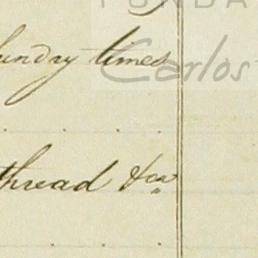 FUNDA
Sundry times
Carlos
thread &ca